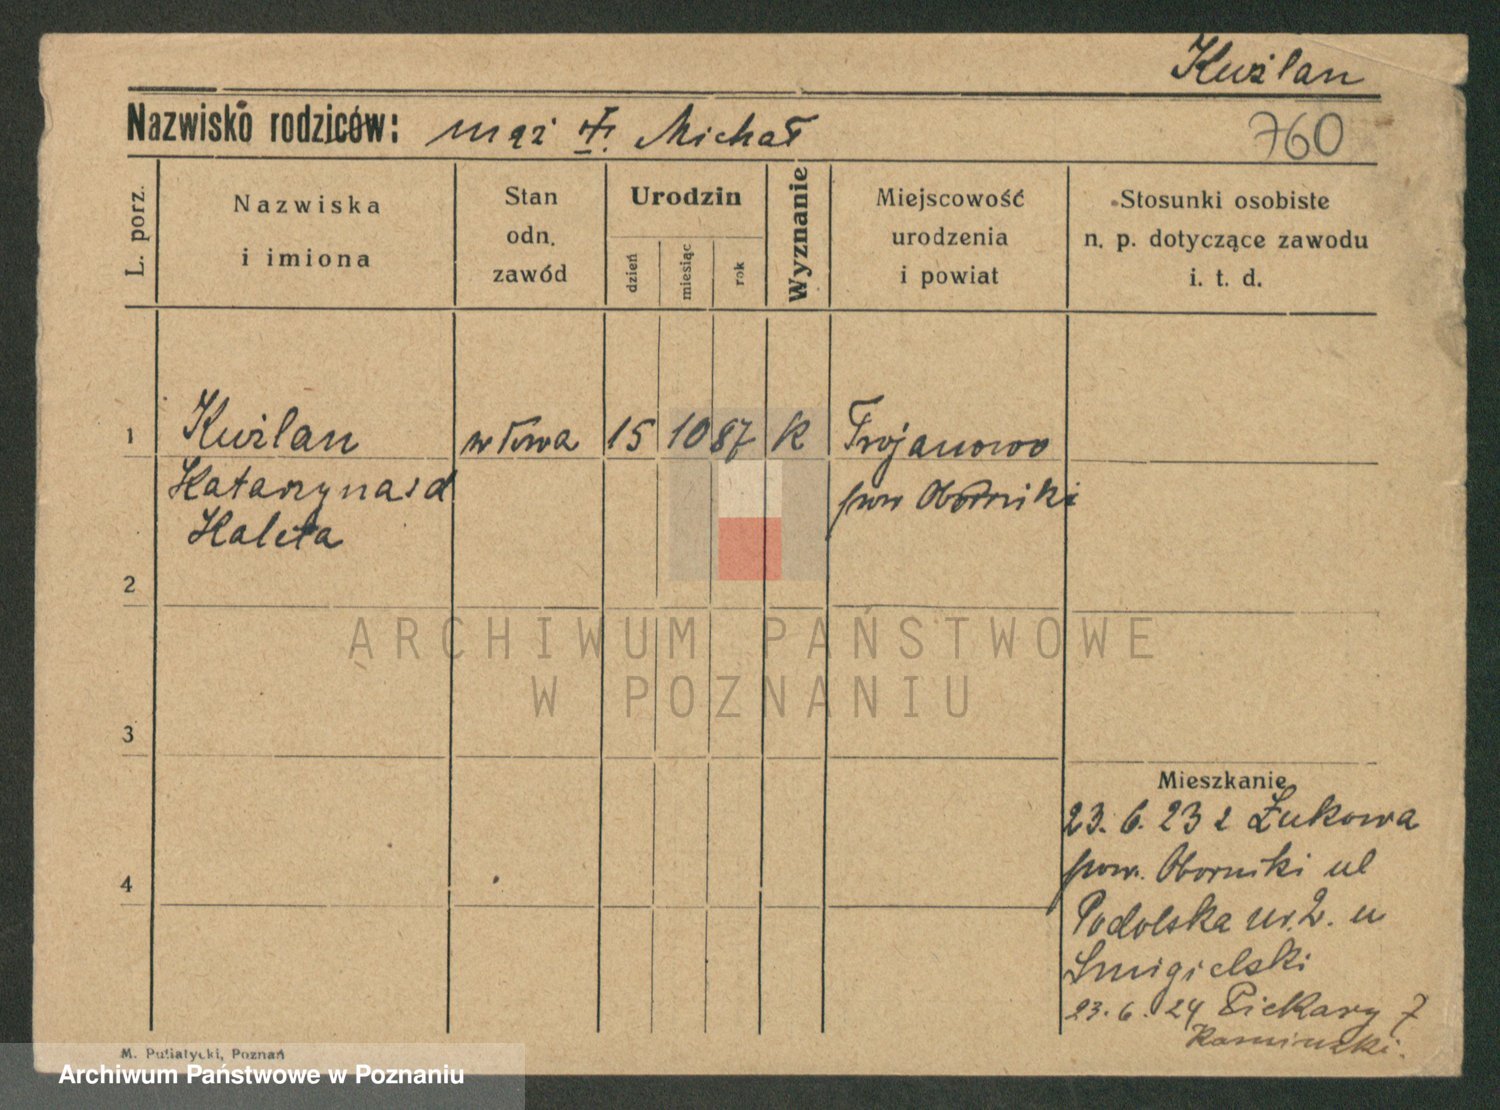 Kuźlan
Nazwisko rodziców: mąż †. Michał
760
L. porz.
Nazwiska
i imiona
Stan
odn.
zawód
Urodzin
dzień
miesiąc
rok
Wyznanie
Miejscowość
urodzenia
i powiat
Stosunki osobiste
n. p. dotyczące zawodu
i. t. d.
1 Kuźlan wdowa 15 10 87 k Trojanowo
Katarzyna
pow Oborniki
Kaleta
2
3
4
Mieszkanie
23. 6. 23 z Żukowa
pow. Oborniki ul
Podolska nr. 2. u
Smigielski
23. 6. 24 Piekary 7
Kaminski.
M. Putiatycki, Poznań
ARCHIWUM PAŃSTWOWE
W POZNANIU
Archiwum Państwowe w Poznaniu